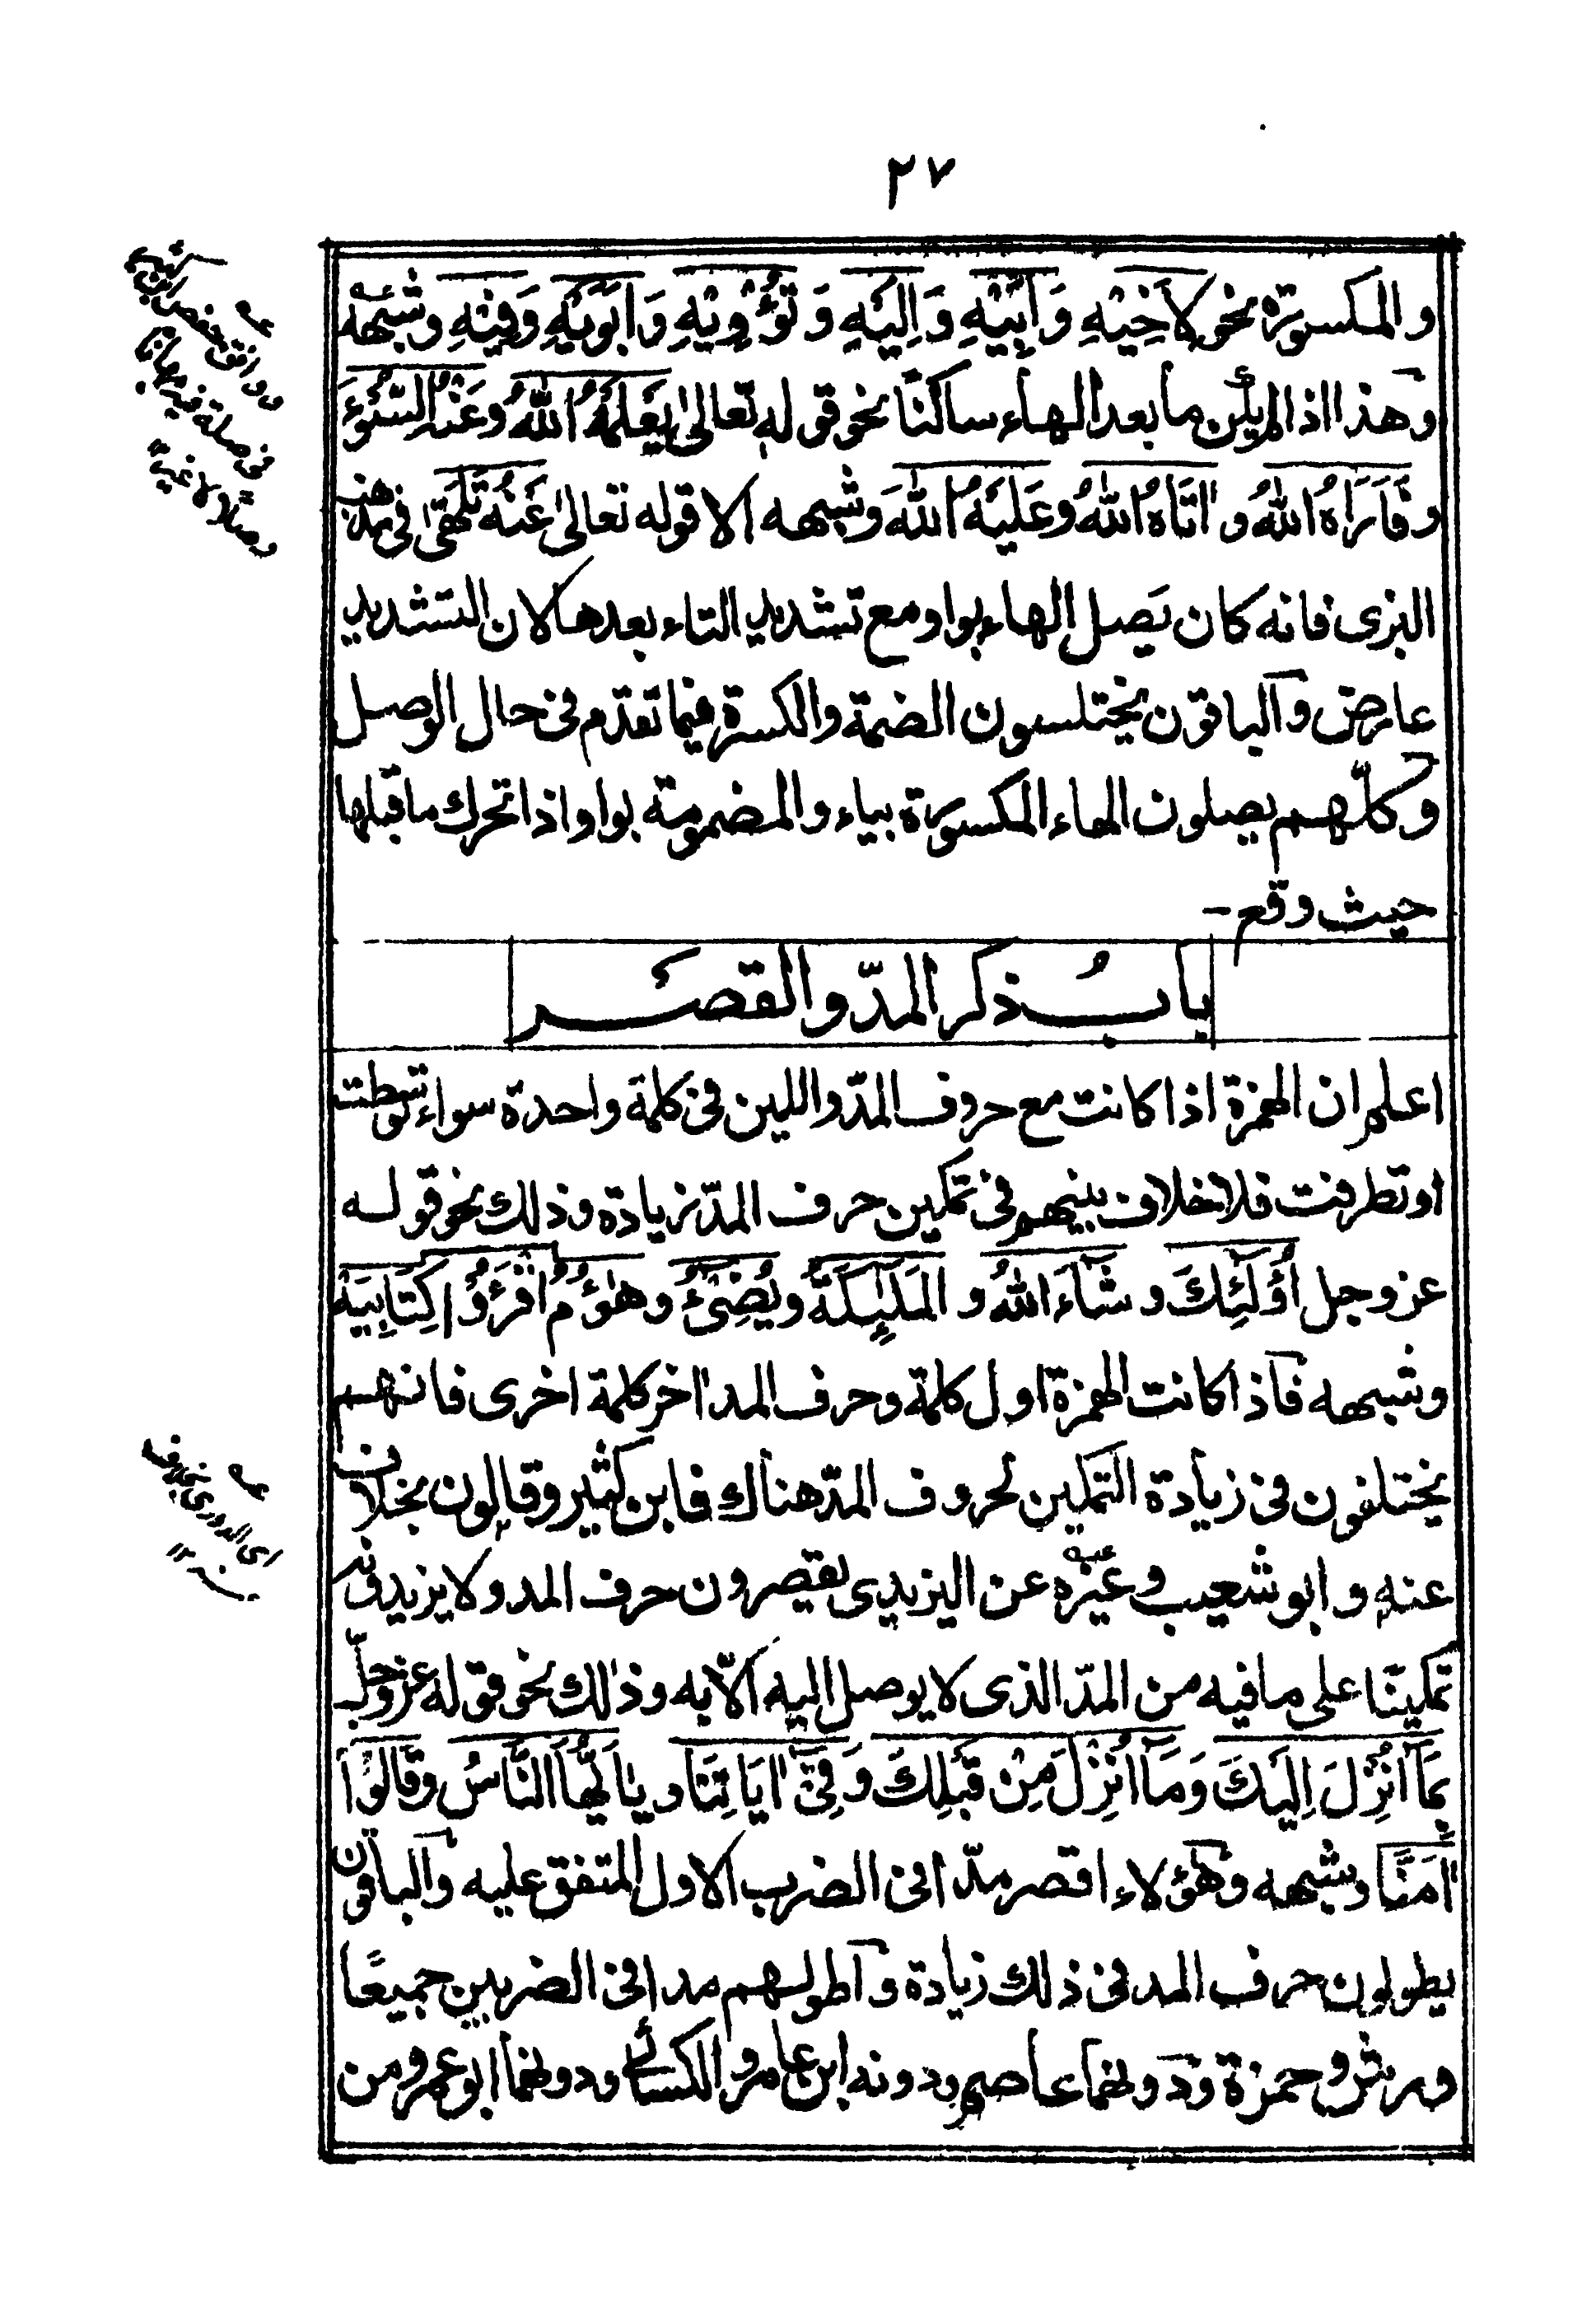 ٢٧
والمكسورة نحو لِاَخِيْهِ وَاَبِيْهِ وَاِلَيْهِ وَتُؤْوِيْهِ وَاَبَوَيْهِ وَفِيْهِ وشبهه
وهذا اذا لم يلق ما بعد الهاء ساكنًا نحو قوله تعالى يَعْلَمْهُ اللهُ وعَنْهُ السُّوْءَ
وفَاَرَاهُ اللهُ و اتَاهُ اللهُ وعَلَيْهُ اللهَ وشبهه الا قوله تعالى عَنْهُ تَلَهّٰى فى مذهب
البزى فانه كان يَصل الهاء بواو مع تشديد التاء بعدها لان التشديد
عارض والباقون يختلسون الضمة والكسرة فيما تقدّم فى حال الوصل
وكلّهم يصلون الهاء المكسورة بياء والمضمومة بواو اذا تحرك ما قبلها
حيث وقع -
بابُ ذكر المدّ والقصر
اعلم ان الهمزة اذا كانت مع حروف المدّ واللين فى كلمة واحدة سواء توسطت
او تطرفت فلا خلاف بينهم فى تمكين حرف المدّ زيادة وذلك نحو قوله
عز وجل اُولٰٓئِكَ و شَآءَ اللهُ و المَلٰٓئِكَةُ ويُضِىْٓءُ وهَاؤُمُ اقْرَءُوْا كِتَابِيَهْ
وشبهه فاذا كانت الهمزة اول كلمة وحرف المد اخر كلمة اخرى فانهم
يختلفون فى زيادة التمكين لحروف المدّ هناك فابن كثير وقالون بخلاف
عنه و ابو شعيب وغيره عن اليزيدى يقصرون حرف المد ولا يزيدونه
تمكينًا على ما فيه من المدّ الذى لا يوصل اليه الّا به وذالك نحو قوله عز وجلّ
بِمَآ اُنْزِلَ اِلَيْكَ وَمَآ اُنْزِلَ مِنْ قَبْلِكَ وَفِىْٓ ايَاتِنَا و يٰٓاَيُّهَا النَّاسُ وقَالُوْٓا
اٰمَنَّا وشبهه وهؤلاء اقصر مدّا فى الضرب الاول المتفق عليه والباقون
يطولون حرف المد فى ذلك زيادة واطولهم مدا فى الضربين جميعًا
ورش وحمزة ودونهما عاصم ودونه ابن عامر والكسائى ودونهما ابو عمرو من
عه
اى الدورى بخلاف